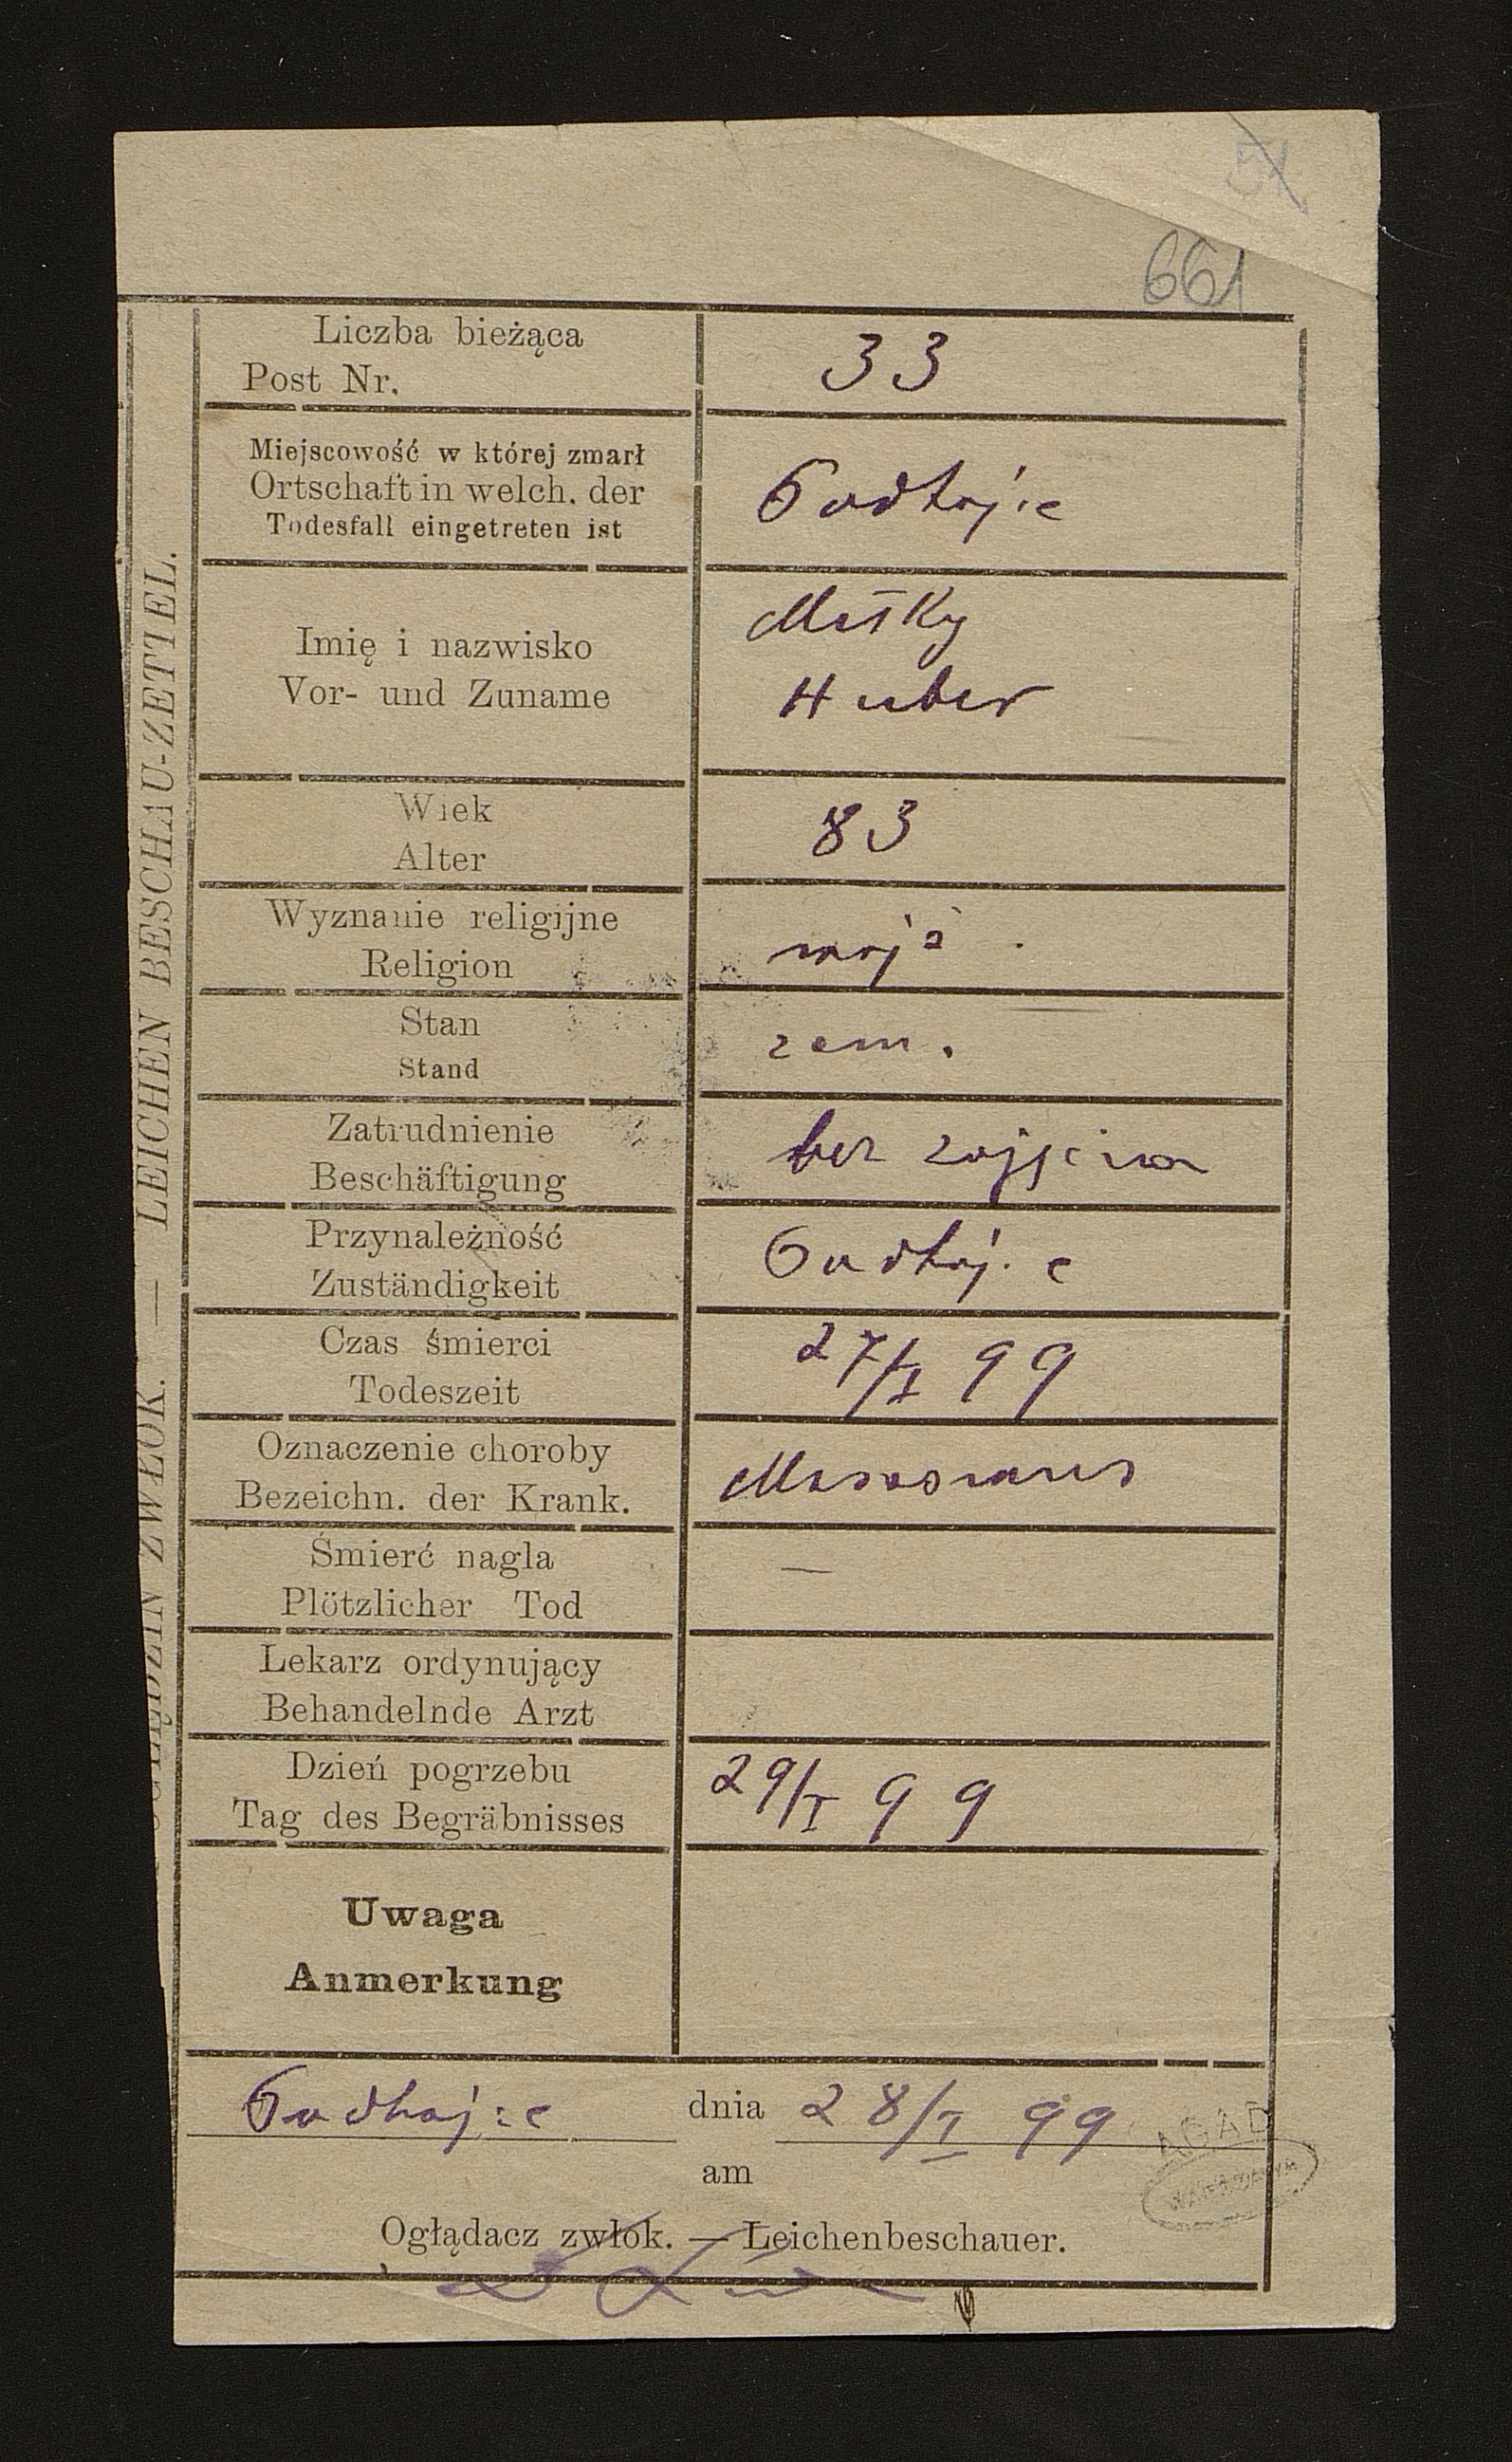 51
661
LEICHEN BESCHAU-ZETTEL.
ZWŁOK. —
Liczba bieżąca
Post Nr.
33
Miejscowość w której zmarł
Ortschaft in welch. der
Todesfall eingetreten ist
Podhajce
Imię i nazwisko
Vor- und Zuname
Huber
Wiek
Alter
83
Wyznanie religijne
Religion
mojż
Stan
Stand
zam.
Zatrudnienie
Beschäftigung
bez zajęcia
Przynależność
Zuständigkeit
Podhajce
Czas śmierci
Todeszeit
27/I 99
Oznaczenie choroby
Bezeichn. der Krank.
Marasmus
Śmierć nagla
Plötzlicher Tod
—
Lekarz ordynujący
Behandelnde Arzt
Dzień pogrzebu
Tag des Begräbnisses
29/I 99
Uwaga
Anmerkung
Podhajce dnia 28/I 99
am
AGAD
WARSZAWA
Oglądacz zwłok. — Leichenbeschauer.